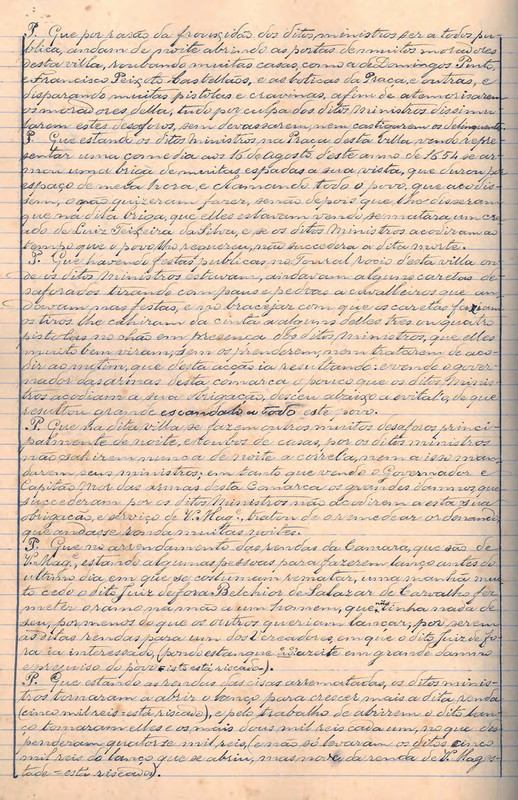 P. Que por rasão da frouxidão dos ditos ministros ser a todos pu
blica, andam de noite abrindo as portas de muitos moradores
desta villa, roubando muitas casas, como a de Domingos Pinto,
e Francisco Peixoto Castellãos, e as boticas da Praça, e outras, e
disparando muitas pistolas e cravinas, afim de atemorisarem
os moradores della, tudo por culpa dos ditos Ministros dissimu
larem estes desaforos, sem devassarem, nem castigarem os delinquentes.
P. Que estando os ditos Ministros na Praça desta Villa vendo repre-
sentar uma comedia aos 15 de Agosto deste anno de 1654 se ar
mou uma briga de muitas espadas a sua vista, que durou por
espaço de meia hora, e chamando todo o povo, que acodis-
sem, o não quizeram fazer, senão depois que lhe disseram
que na dita briga, que elles estavam vendo se matara um cre
ado de Luiz Teixeira da Silva, e se os ditos Ministros acodiram ao
tempo que o povo lho requereu, não succedera a dita morte.
P. Que havendo festas publicas no Toural rocio desta villa on
de os ditos Ministros estavam, andavam alguns caretas de-
saforados tirando com paus e pedras a cavalleiros que an
davam nas festas, e no bracejar com que os caretas faziam
os tiros lhe cahiram da cinta a alguns delles tres ou quatro
pistolas no chão em presença dos ditos Ministros, que elles
muito bem viram, sem os prenderem, nem tratarem de aco-
dir ao motim, que desta acção ia resultando: e vendo o gover-
nador das armas desta comarca o pouco que os ditos Minis
tros acodiam a sua obrigação, desceu abaixo a evital-o, de que
resultou grande escandalo a todo este povo.
P. Que na dita villa se fazem outros muitos desaforos princi-
palmente de noite, e roubos de casas, por os ditos ministros
não sahirem nunca de noite a correl-a, nem a isso man-
darem seus ministros; em tanto que vendo o Governador e
Capitão Mor das armas desta Comarca os grandes damnos, que
succederam por os ditos Ministros não acodirem a esta sua
obrigação, e serviço de V. Mag.e, tratou de o remedear ordenando
que andasse ronda muitas noites.
P. Que no arrendamento das rendas da Camara, que são de
V. Mag.e, estando algumas pessoas para fazerem lanço antes do
ultimo dia em que se costumam rematar, uma manhã mui
to cedo o dito Juiz de fora Belchior de Salazar de Carvalho, fez
meter o ramo na mão a um homem, que não tinha nada de
seu, por menos do que os outros queriam lançar, por serem
as ditas rendas para um dos Vereadores, em que o dito Juiz de fo
ra ia interessado, (pondo estanque no azeite em grande damno
e prejuiso do povo = isto está riscado).
P. Que estando as rendas das cisas arrematadas, os ditos minis-
tros tornaram a abrir o lanço para crescer mais a dita renda
(cinco mil reis = está riscado), e pelo trabalho de abrirem o dito lan-
ço tomaram elles e os mais dous mil reis cada um, no que des
penderam quatorse mil reis, (e não só levaram os ditos cinco
mil reis do lanço que se abriu, mas nove da renda de V. Mages-
tade = está riscado).